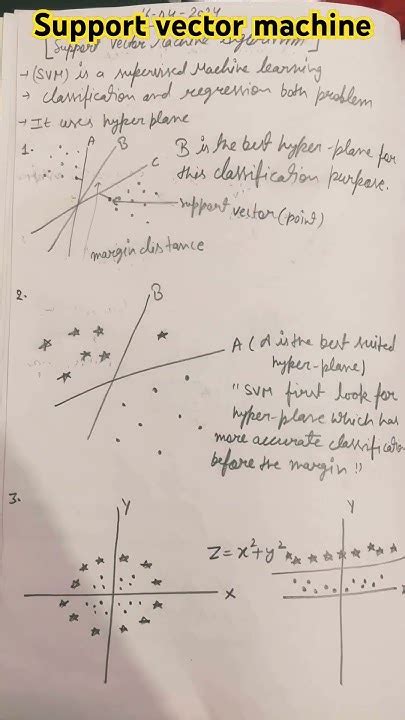 Support vector machine
[Support Vector Machine Algorithm]
→ (SVM) is a supervised Machine learning
→ classification and regression both problem
→ It uses hyper plane
1.
A
B
C
B is the best hyper-plane for
this classification purpose.
support vector (point)
margin distance
2.
B
A (A is the best suited
hyper-plane)
"SVM first look for
hyper-plane which has
more accurate classification
before the margin"
3.
Y
X
Z = x²+y²
Y